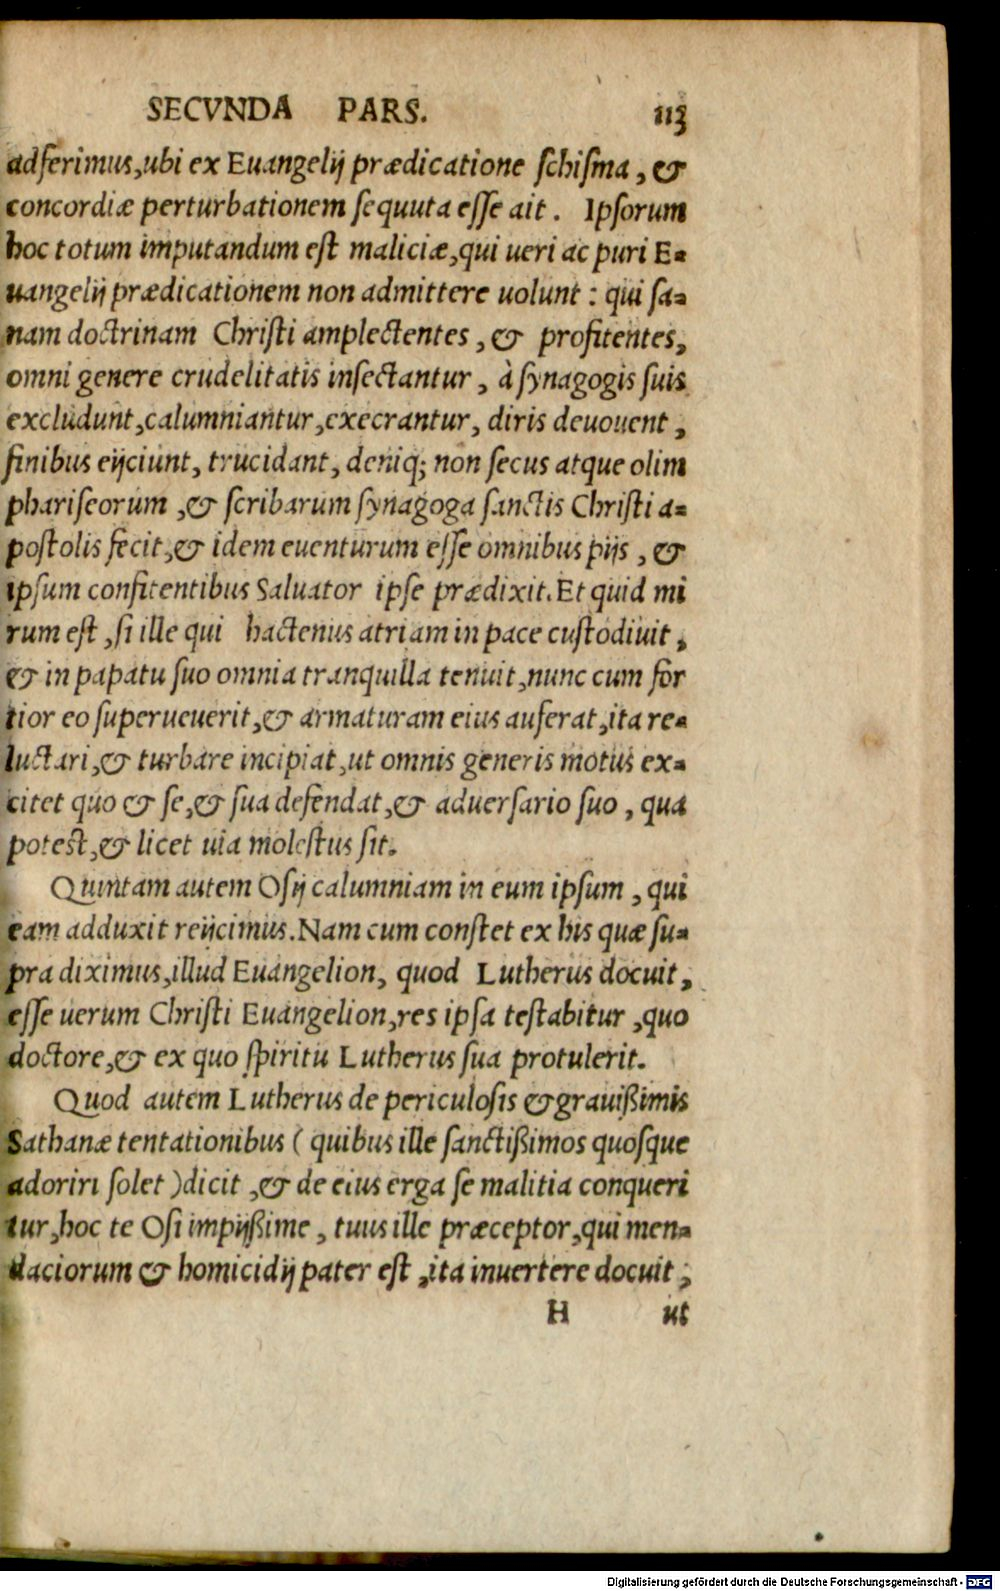 SECVNDA PARS. 113
adſerimus, ubi ex Euangelij prædicatione ſchiſma, &
concordiæ perturbationem ſequuta eſſe ait. Ipſorum
hoc totum imputandum eſt maliciæ, qui ueri ac puri E-
uangelij prædicationem non admittere uolunt: qui ſa-
nam doctrinam Chriſti amplectentes, & profitentes,
omni genere crudelitatis inſectantur, à ſynagogis ſuis
excludunt, calumniantur, execrantur, diris deuouent,
finibus eijciunt, trucidant, deniq; non ſecus atque olim
phariſeorum, & ſcribarum ſynagoga ſanctis Chriſti a-
poſtolis fecit, & idem euenturum eſſe omnibus pijs, &
ipſum confitentibus Saluator ipſe prædixit. Et quid mi
rum eſt, ſi ille qui hactenus atriam in pace cuſtodiuit,
& in papatu ſuo omnia tranquilla tenuit, nunc cum for
tior eo ſuperueuerit, & armaturam eius auferat, ita re-
luctari, & turbare incipiat, ut omnis generis motus ex-
citet quo & ſe, & ſua defendat, & aduerſario ſuo, qua
poteſt, & licet uia moleſtus ſit.
Quintam autem Oſij calumniam in eum ipſum, qui
eam adduxit reijcimus. Nam cum conſtet ex his quæ ſu-
pra diximus, illud Euangelion, quod Lutherus docuit,
eſſe uerum Chriſti Euangelion, res ipſa teſtabitur, quo
doctore, & ex quo ſpiritu Lutherus ſua protulerit.
Quod autem Lutherus de periculoſis & grauißimis
Sathanæ tentationibus (quibus ille ſanctißimos quoſque
adoriri ſolet) dicit, & de eius erga ſe malitia conqueri
tur, hoc te Oſi impijßime, tuus ille præceptor, qui men-
daciorum & homicidij pater eſt, ita inuertere docuit,
H ut
Digitalisierung gefördert durch die Deutsche Forschungsgemeinschaft - DFG